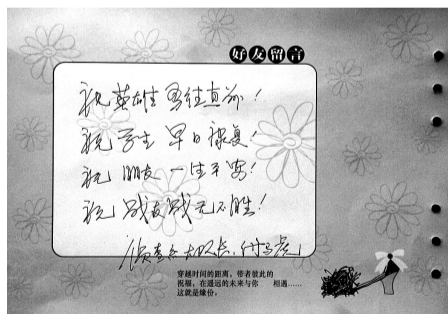 好友留言
祝英雄 勇往直前！
祝学生 早日康复！
祝 朋友 一生平安！
祝 战友战无不胜！
侦查系大队长
穿越时间的距离，带着彼此的
祝福，在遥远的未来与你 相遇……
这就是缘份。